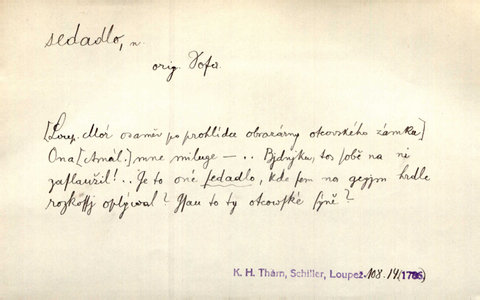 sedadlo, n.
orig. Sofa.
[Loup. Mór osaměv po prohlídce obrazárny otcovského zámku]
Ona [Amál.] mne miluge — .. Bjdnjku, tos sobě na nj
zaslaužil! .. Je to oné sedadlo, kde sem na gegjm hrdle
rozkossj oplýwal? Gsau to ty otcowské syně?
K. H. Thám, Schiller, Loupež. 108.14 (1786)